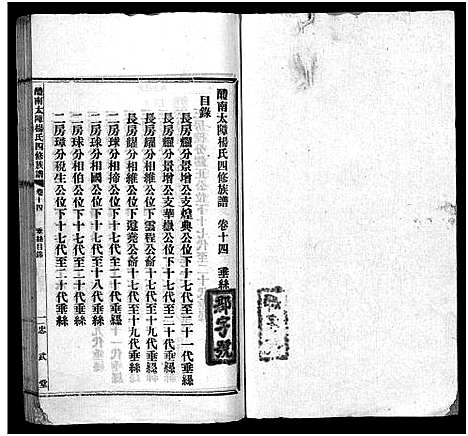 醴南太障楊氏四修族譜 卷十四 垂絲
目錄
長房耀分景增公支煌典公位下十七代至二十一代垂絲
長房耀分景增公支華嶽公位下十七代至二十代垂絲
長房耀分相維公位下雲程公裔十七代至十九代垂絲
長房耀分相維公位下遠堯公裔十七代至十九代垂絲
二房球分相揥公位下十七代至二十代垂絲
二房球分相國公位下十七代至十八代垂絲
二房球分相伯公位下十七代至十九代垂絲
二房璋分稅生公位下十七代至二十代垂絲
醴南太障楊氏四修族譜 卷十四 垂絲目錄 一 忠武堂
鄒字號